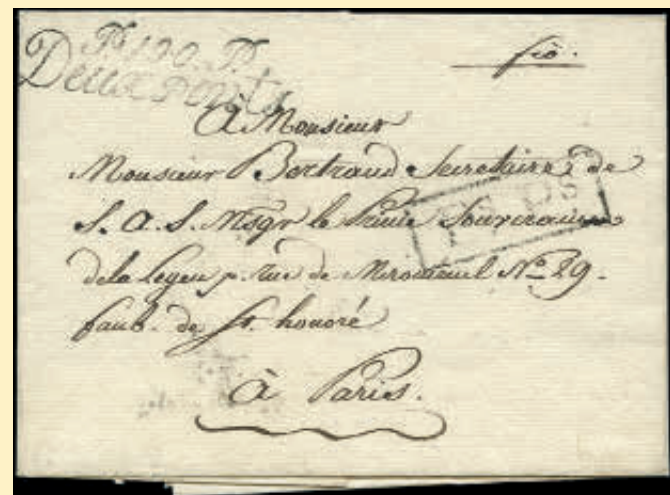 P. 100. P.
Deux Ponts
frô.
A Monsieur
Monsieur Bertrand Secretaire de
S. A. S. Msgr le Prince Souverain
de la Leyen p. rue de Miromenil No. 29.
faub. de St. honoré
à Paris.